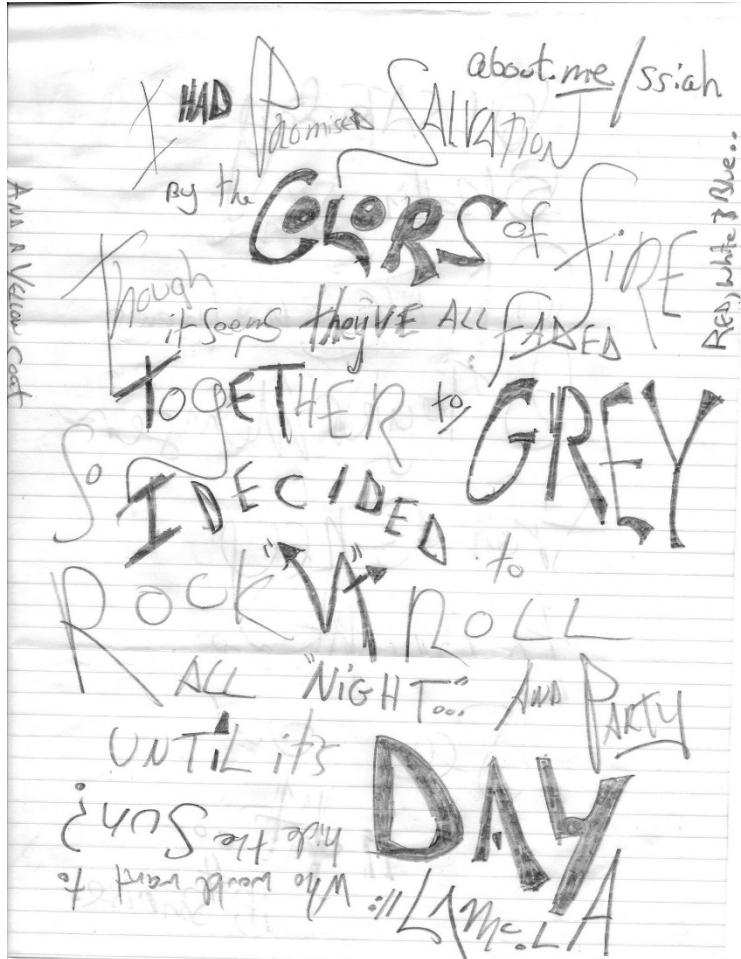 about.me/ssiah
I HAD Promised SALVATION
By the COLORS of fIRE
RED, White & Blue..
AND A Yellow Coat
Though
it seems they'VE ALL FADED
TOGETHER to GREY
So I DECIDED to
ROCK "N" ROLL
ALL "NiGHT..." AND PARTY
UNTiL it's DAY
Who would want to
hide the Sun?